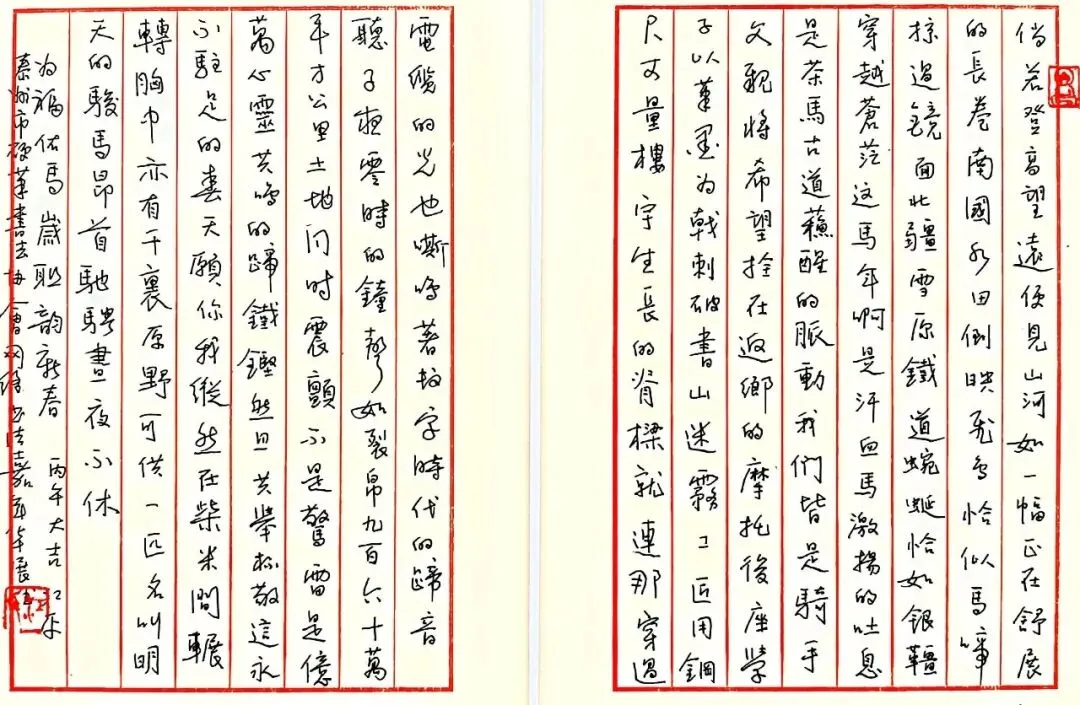 倘若登高望遠便見山河如一幅正在舒展
的長卷南國水田倒映飛鳥恰似馬蹄
掠過鏡面北疆雪原鐵道蜿蜒恰如銀韁
穿越蒼茫這馬年啊是汗血馬激揚的吐息
是茶馬古道蘇醒的脈動我們皆是騎手
父親將希望拴在返鄉的摩托後座學
子以筆墨为戟刺破書山迷霧工匠用鋼
尺丈量樓宇生長的脊樑就連那穿過
電纜的光也嘶鳴著數字時代的蹄音
聽子夜零時的鐘聲如裂帛九百六十萬
平方公里土地同时震顫不是驚雷是億
萬心靈共鳴的蹄鐵鏗然且共舉杯敬這永
不駐足的春天願你我縱然在柴米間輾
轉胸中亦有千裏原野可供一匹名叫明
天的駿馬昂首馳騁晝夜不休
为福佑馬歲聯韵新春 丙午大吉
泰州市硬筆書法協會网络書法嘉年华展